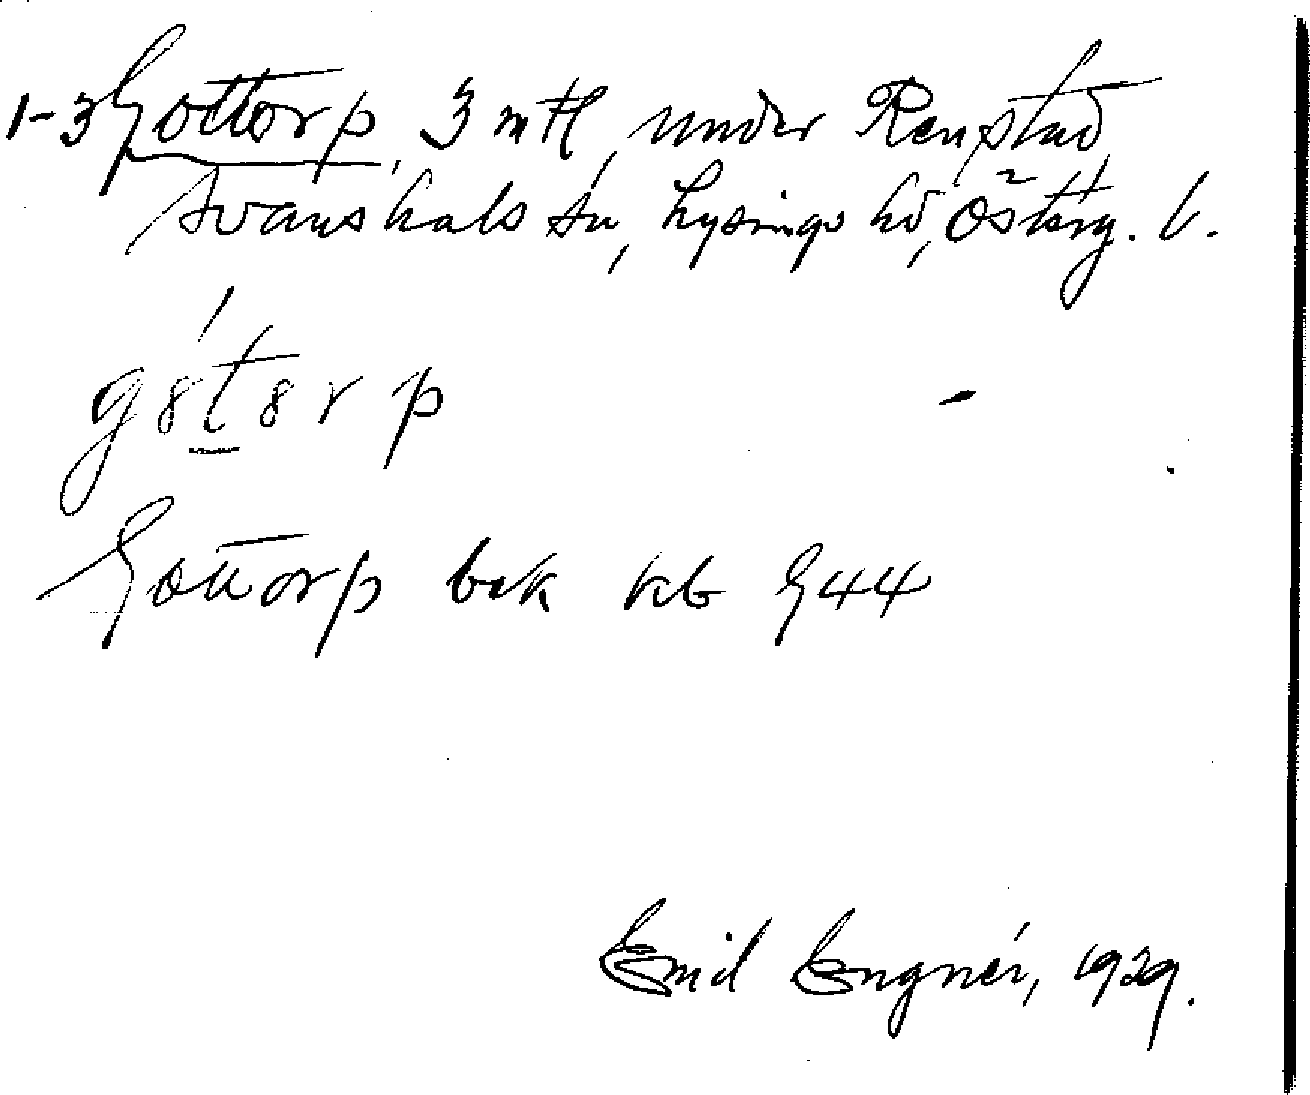 1-3 Gottorp, 3 mtl, under Renstad,
Svanshals sn, Lysings hd, Österg. l.
g8t8rp
Gottorp bek kb G44
Emil Engnér, 1929.